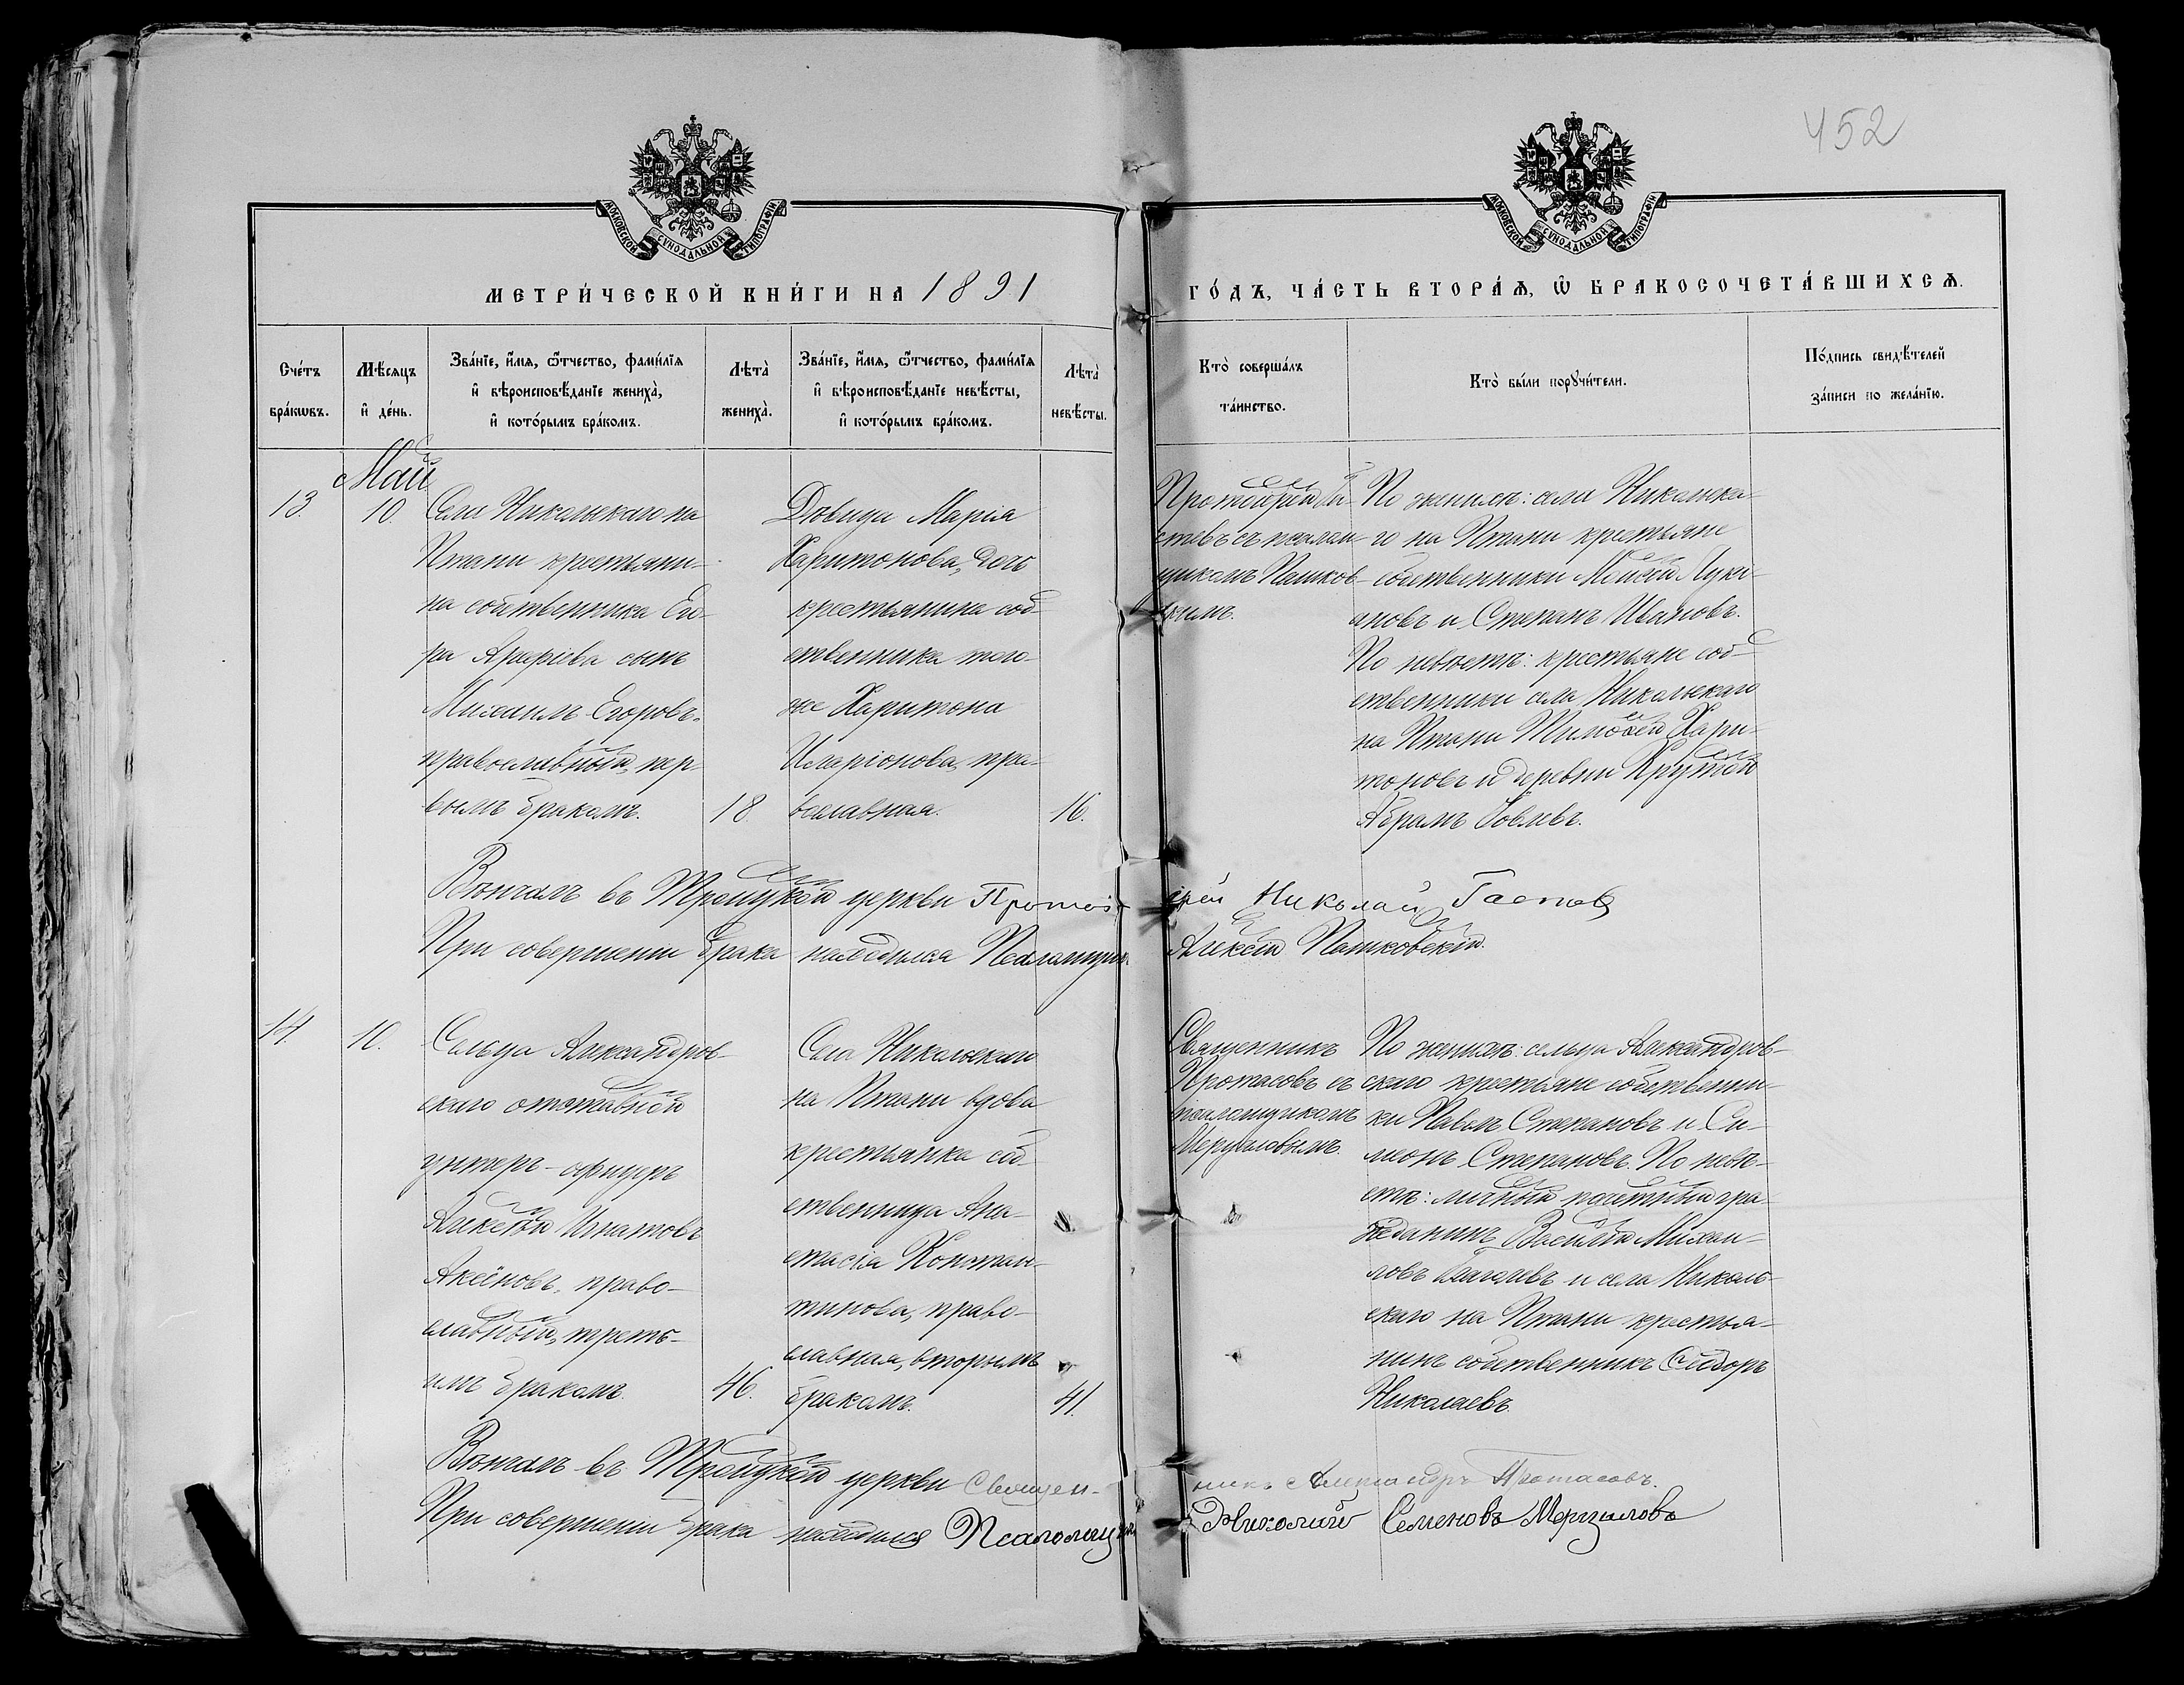 452
МОСКОВСКОЙ СѴНОДАЛЬНОЙ ТИПОГРАФІИ
МОСКОВСКОЙ СѴНОДАЛЬНОЙ ТИПОГРАФІИ
МЕТРИ́ЧЕСКОЙ КНИ́ГИ НА 1891
ГО́ДЪ, ЧА́СТЬ ВТОРА́Ѧ, Ѽ БРАКОСОЧЕТА́ВШИХСѦ.
Сче́тъ
бра́кѡвъ.
Мѣ́сяцъ
и҆ де́нь.
Зва́нїе, и҆́мѧ, ѻ҆́тчество, фами́лїѧ
и҆ вѣроисповѣ́данїе жениха̀,
и҆ кото́рымъ бра́комъ.
Лѣта̀
жениха̀.
Зва́нїе, и҆́мѧ, ѻ҆́тчество, фами́лїѧ
и҆ вѣроисповѣ́данїе невѣ́сты,
и҆ кото́рымъ бра́комъ.
Лѣта̀
невѣ́сты.
Кто̀ соверша́лъ
та́инство.
Кто̀ бы́ли порꙋчи́тели.
По́дпись свидѣ́телей
за́писи по жела́нїю.
Май
13.
10.
Села Никольскаго на
Птани крестьяни-
на собственника Его-
ра Арефіева сынъ
Михаилъ Егоровъ,
православный, пер-
вымъ бракомъ.
18.
Дѣвица Марія
Харитонова, дочь
крестьянина соб-
ственника того-
же Харитона
Иларіонова, пра-
вославная.
16.
Протоіерей Га-
стевъ съ псалом-
щикомъ Пашков-
скимъ.
По женихѣ: села Никольска-
го на Птани крестьяне
собственники Мойсей Лукі-
ановъ и Степанъ Ивановъ.
По невѣстѣ: крестьяне соб-
ственники села Никольскаго
на Птани Тимоѳей Хари-
тоновъ и деревни Крутой
Абрамъ Іовлевъ.
Вѣнчалъ въ Троицкой церкви Протоіерей Николай Гастев
При совершеніи брака находился Псаломщик Алексѣй Пашковскій.
14.
10.
Сельца Александров-
скаго отставной
унтеръ-офицеръ
Алексѣй Игнатовъ
Аксёновъ, право-
славный, треть-
имъ бракомъ.
46.
Села Никольскаго
на Птани вдова
крестьянка соб-
ственница Ана-
стасія Констан-
тинова, право-
славная, вторымъ
бракомъ.
41.
Священникъ
Протасовъ съ
псаломщикомъ
Мерцаловымъ.
По женихѣ: сельца Александров-
скаго крестьяне собственни-
ки Павелъ Степановъ и Си-
меонъ Степановъ. По невѣ-
стѣ: личный почетный гра-
жданинъ Василій Михаи-
ловъ и села Николь-
скаго на Птани крестья-
нинъ собственникъ Сидоръ
Николаевъ.
Вѣнчалъ въ Троицкой церкви Священникъ Александръ Протасовъ.
При совершеніи брака находился Псаломщик Николай Семеновъ Мерцаловъ